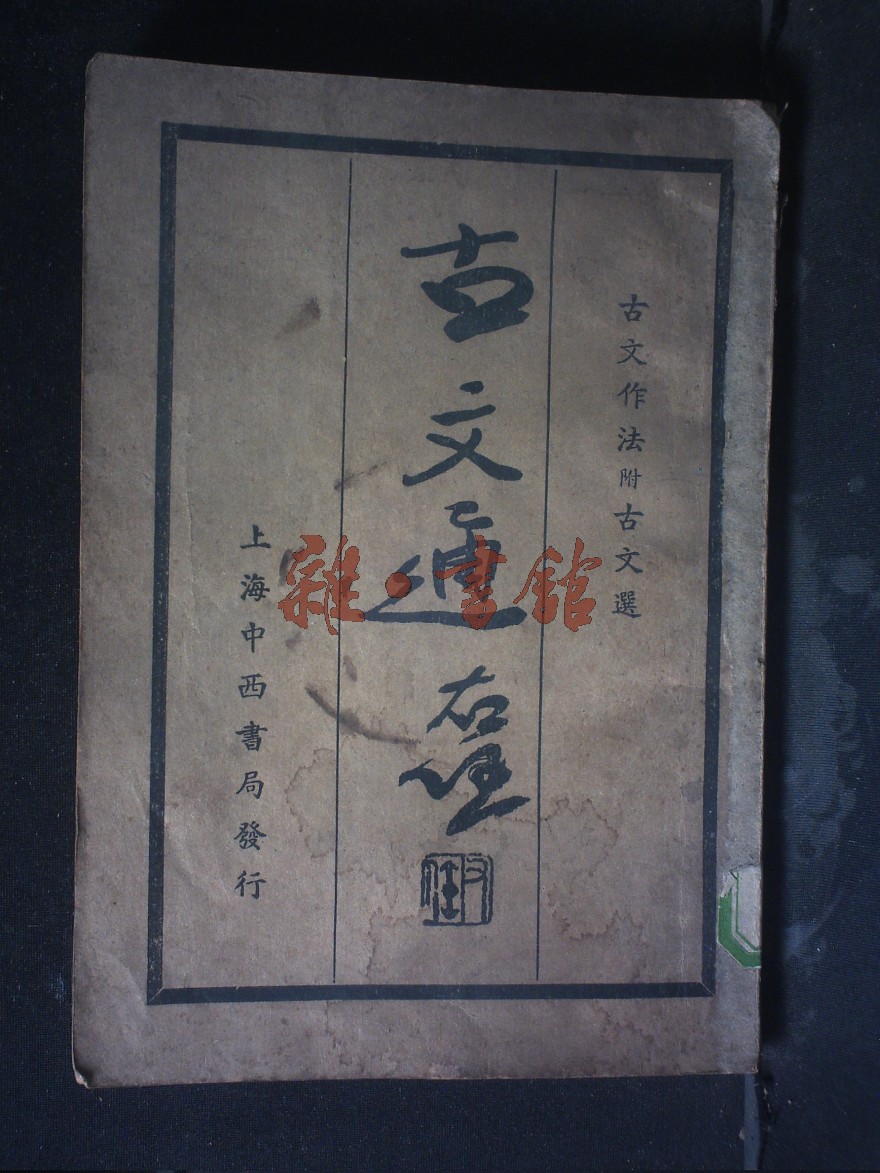 古文作法附古文選
古文通
右任
右任
上海中西書局發行
雜·書館